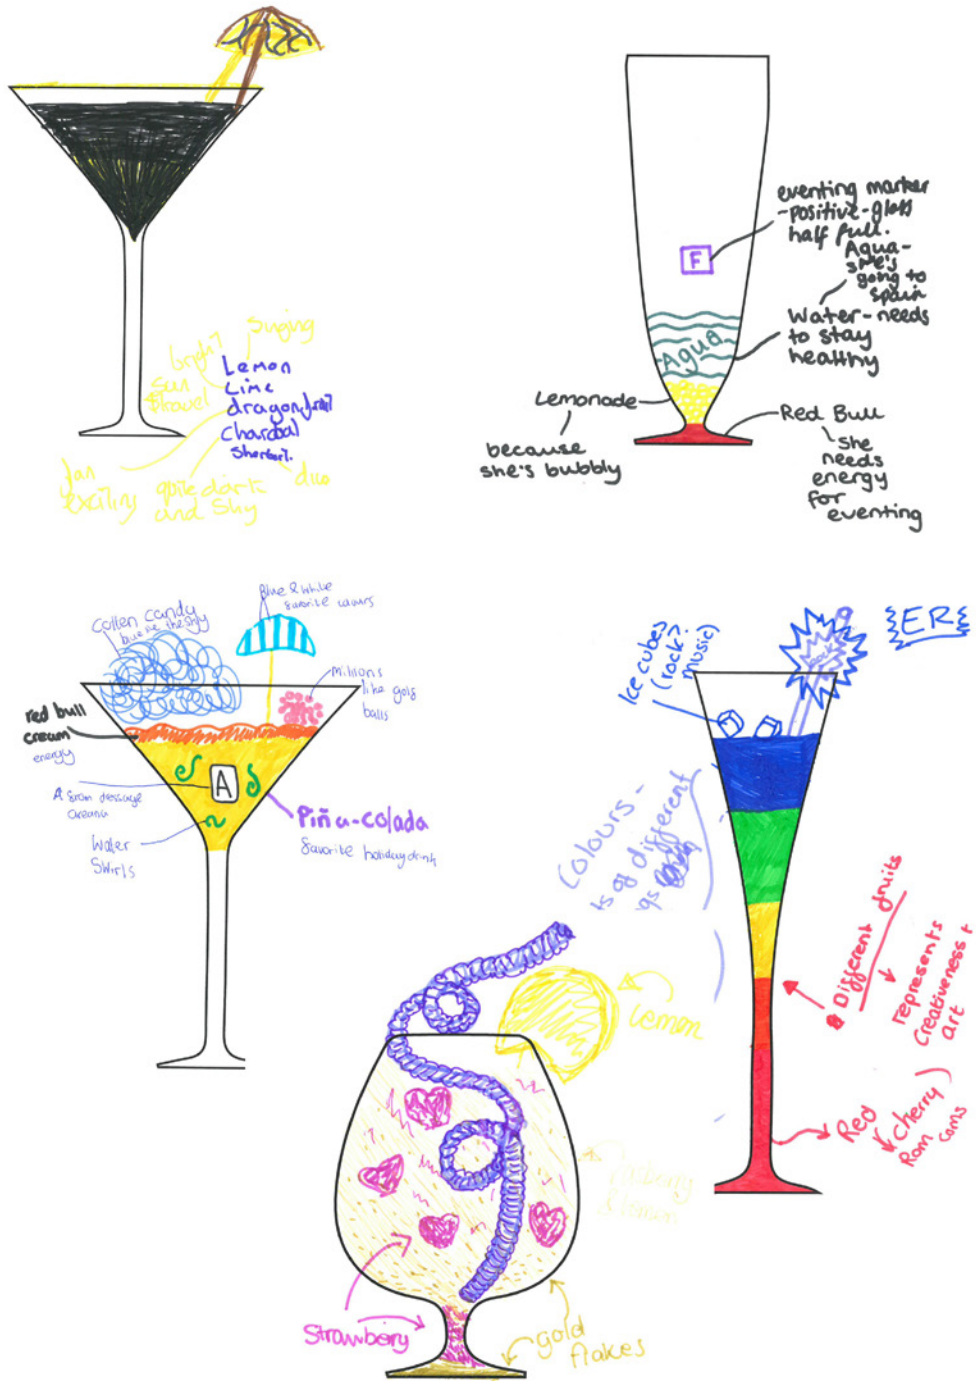 Singing
bright
Sun
travel
Lemon
Lime
dragonfruit
Charcoal
Sherbert.
fun
exciting
quite dark
and shy
duo
eventing marker
-positive-glass
half full.
F
Aqua-
she's
going to
spain
Water-needs
to stay
healthy
Aqua
Lemonade
because
she's bubbly
Red Bull
She
needs
energy
for
eventing
Blue & white
favorite colours
Cotten candy
blue like the sky
millions
like golf
balls
red bull
cream
energy
A
A from dressage
arena
Water
Swirls
Piña-colada
favorite holiday drink
{ER}
Rock
Ice cubes
(rock?
music)
Colours -
of different
Different fruits
represents
Creativeness +
art
Red
Cherry)
Rom coms
lemon
rasberry
& lemon
Strawbery
gold
flakes